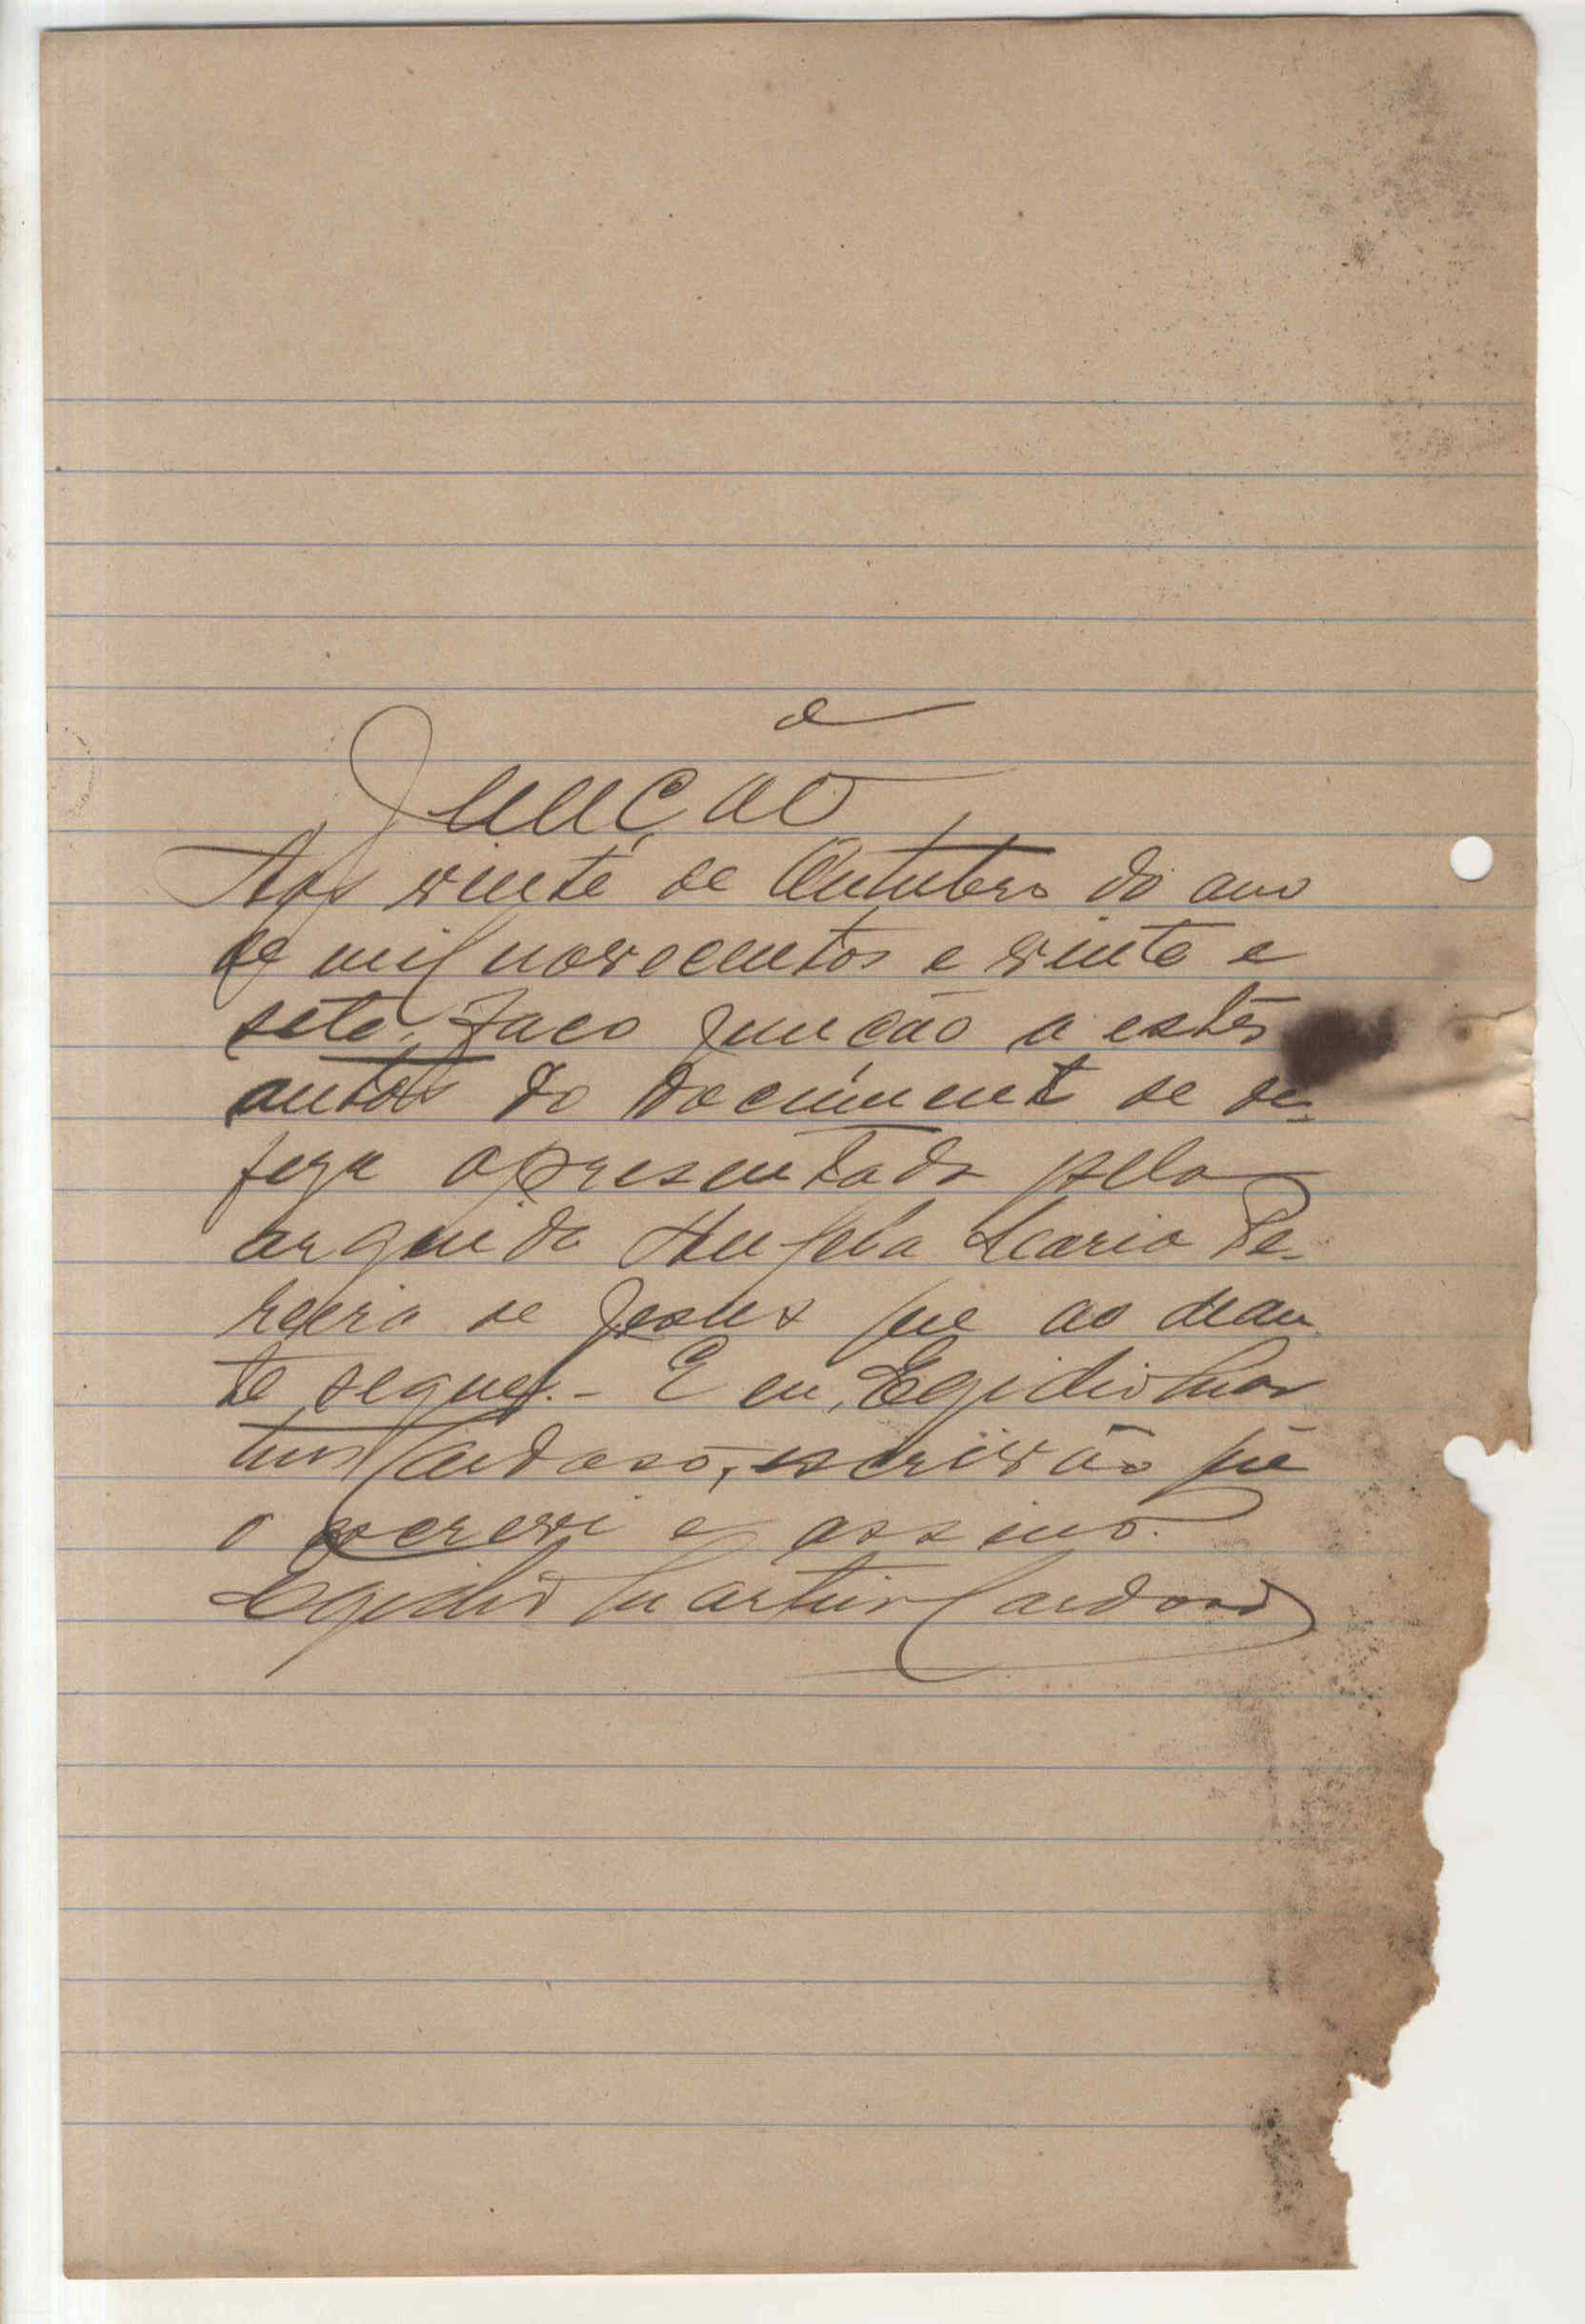 Junção
Aos vinte de Outubro do ano
de mil novecentos e vinte e
sete, faço junção a estes
autos do document de de-
feza apresentada pela
arguida Maria Pe-
reira de Jesus que ao dean
te segue. - E eu, Egidio Mar
tins Cardoso, escrivão que
o escrevi e assino.
Egidio Martins Cardoso